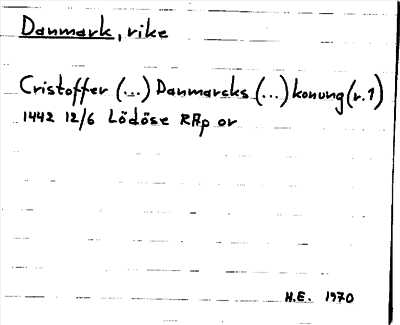 Danmark, rike
Cristoffer (...) Danmarcks (...) konung (r.1)
1442 12/6 Lödöse RAp or
H.E. 1970